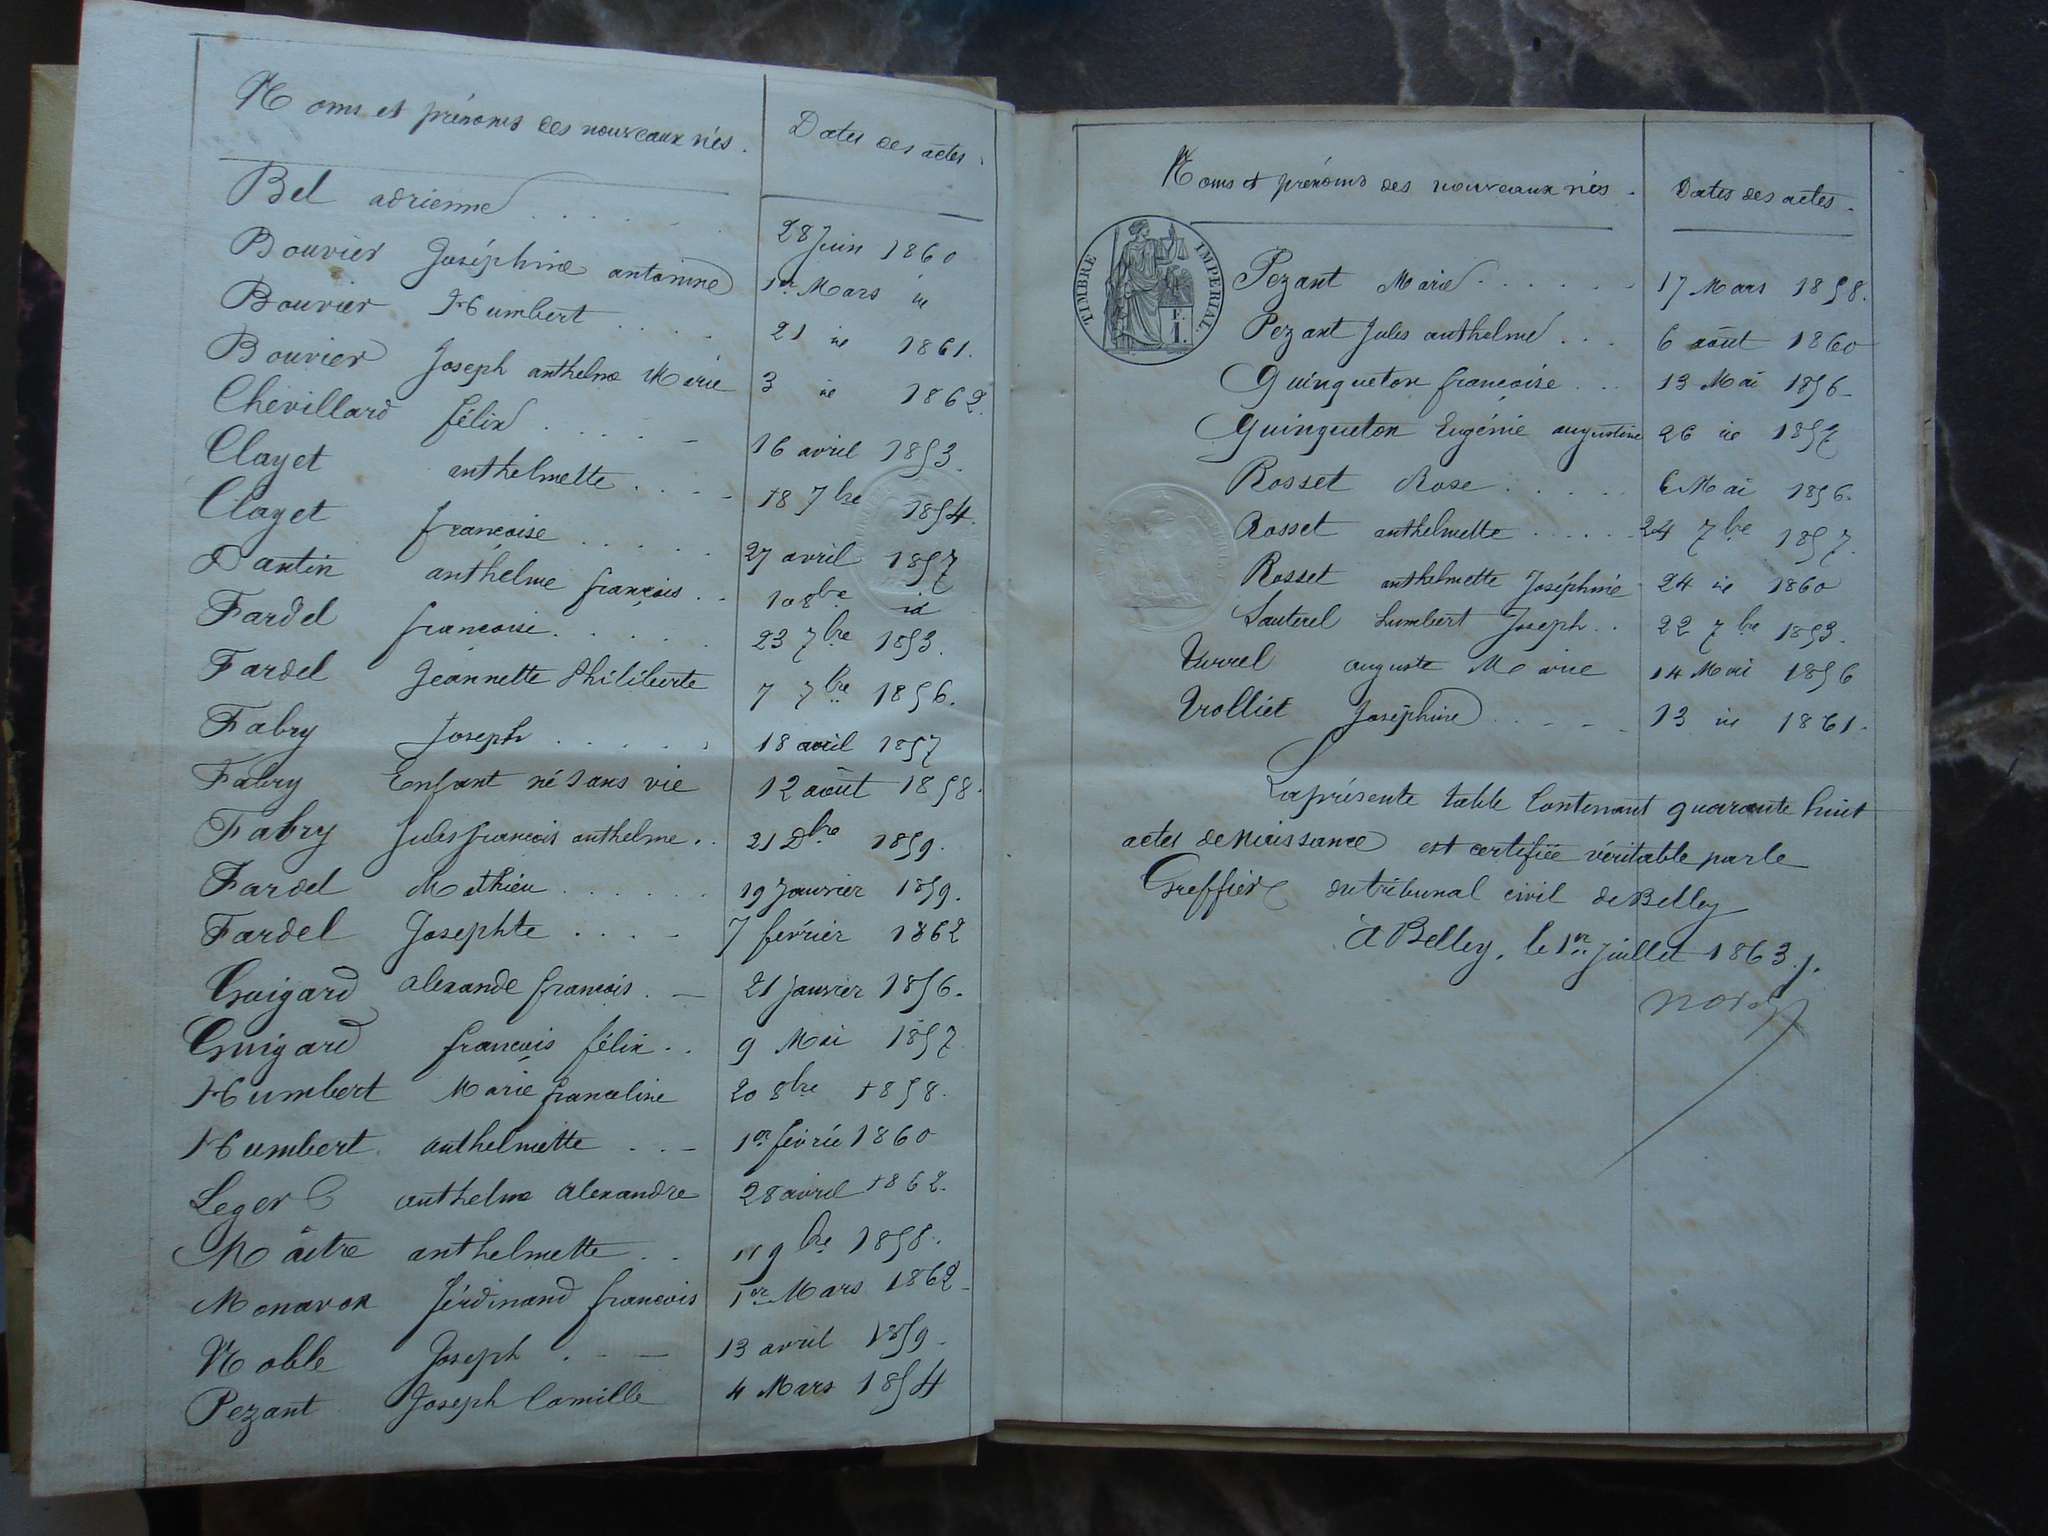 Noms et prénoms des nouveaux nés. Dates des actes.
Bel adrienne . . . . . 28 Juin 1860
Bouvier Joséphine antonine 1er Mars id
Bouvier Humbert . . . . 21 id 1861.
Bouvier Joseph anthelme Marie 3 id 1862.
Chevillard félix . . . . . 16 avril 1853.
Clayet anthelmette . . . . 18 7bre 1854.
Clayet françoise . . . . . 27 avril 1857
Dantin anthelme françois . . 10 8bre id
Fardel françoise . . . . . 23 7bre 1853.
Fardel Jeannette Philiberte 7 7bre 1856.
Fabry Joseph . . . . . 18 avril 1857
Fabry Enfant né sans vie 12 août 1858.
Fabry Jules françois anthelme . . 21 Dbre 1859.
Fardel Mathieu . . . . . 19 Janvier 1859.
Fardel Josephte . . . . 7 février 1862
Guigard alexande françois . 21 janvier 1856.
Guigard françois félix . . 9 Mai 1857
Humbert Marie franceline 20 8bre 1858.
Humbert anthelmette . . . 1er février 1860
Leger anthelme alexandre 28 avril 1862.
Maître anthelmette . . 11 9bre 1858.
Monavon férdinand françois 1er Mars 1862
Noble Joseph . 13 avril 1859.
Pezant Joseph Camille 4 Mars 1854
Noms et prénoms des nouveaux nés. Dates des actes.
TIMBRE IMPERIAL.
F.
1.
Pezant Marie . . . . . . 17 Mars 1858.
Pezant Jules anthelme . . . 6 août 1860
Guinqueton françoise . . . 13 Mai 1856
Guinqueton Eugénie augustine 26 id 1857
Rosset Rose . . . . . 6 Mai 1856.
Rosset anthelmette . . . . . 24 7bre 1857.
Rosset anthelmette Joséphine 24 id 1860
Sauterel humbert Joseph . . 22 7bre 1853.
Turrel auguste Marie 14 Mai 1856
Trolliet Joséphine . . . 13 id 1861.
La présente table Contenant quarante huit
actes de Naissance est certifiée véritable par le
Greffier du tribunal civil de Belley
à Belley, le 1er Juillet 1863.